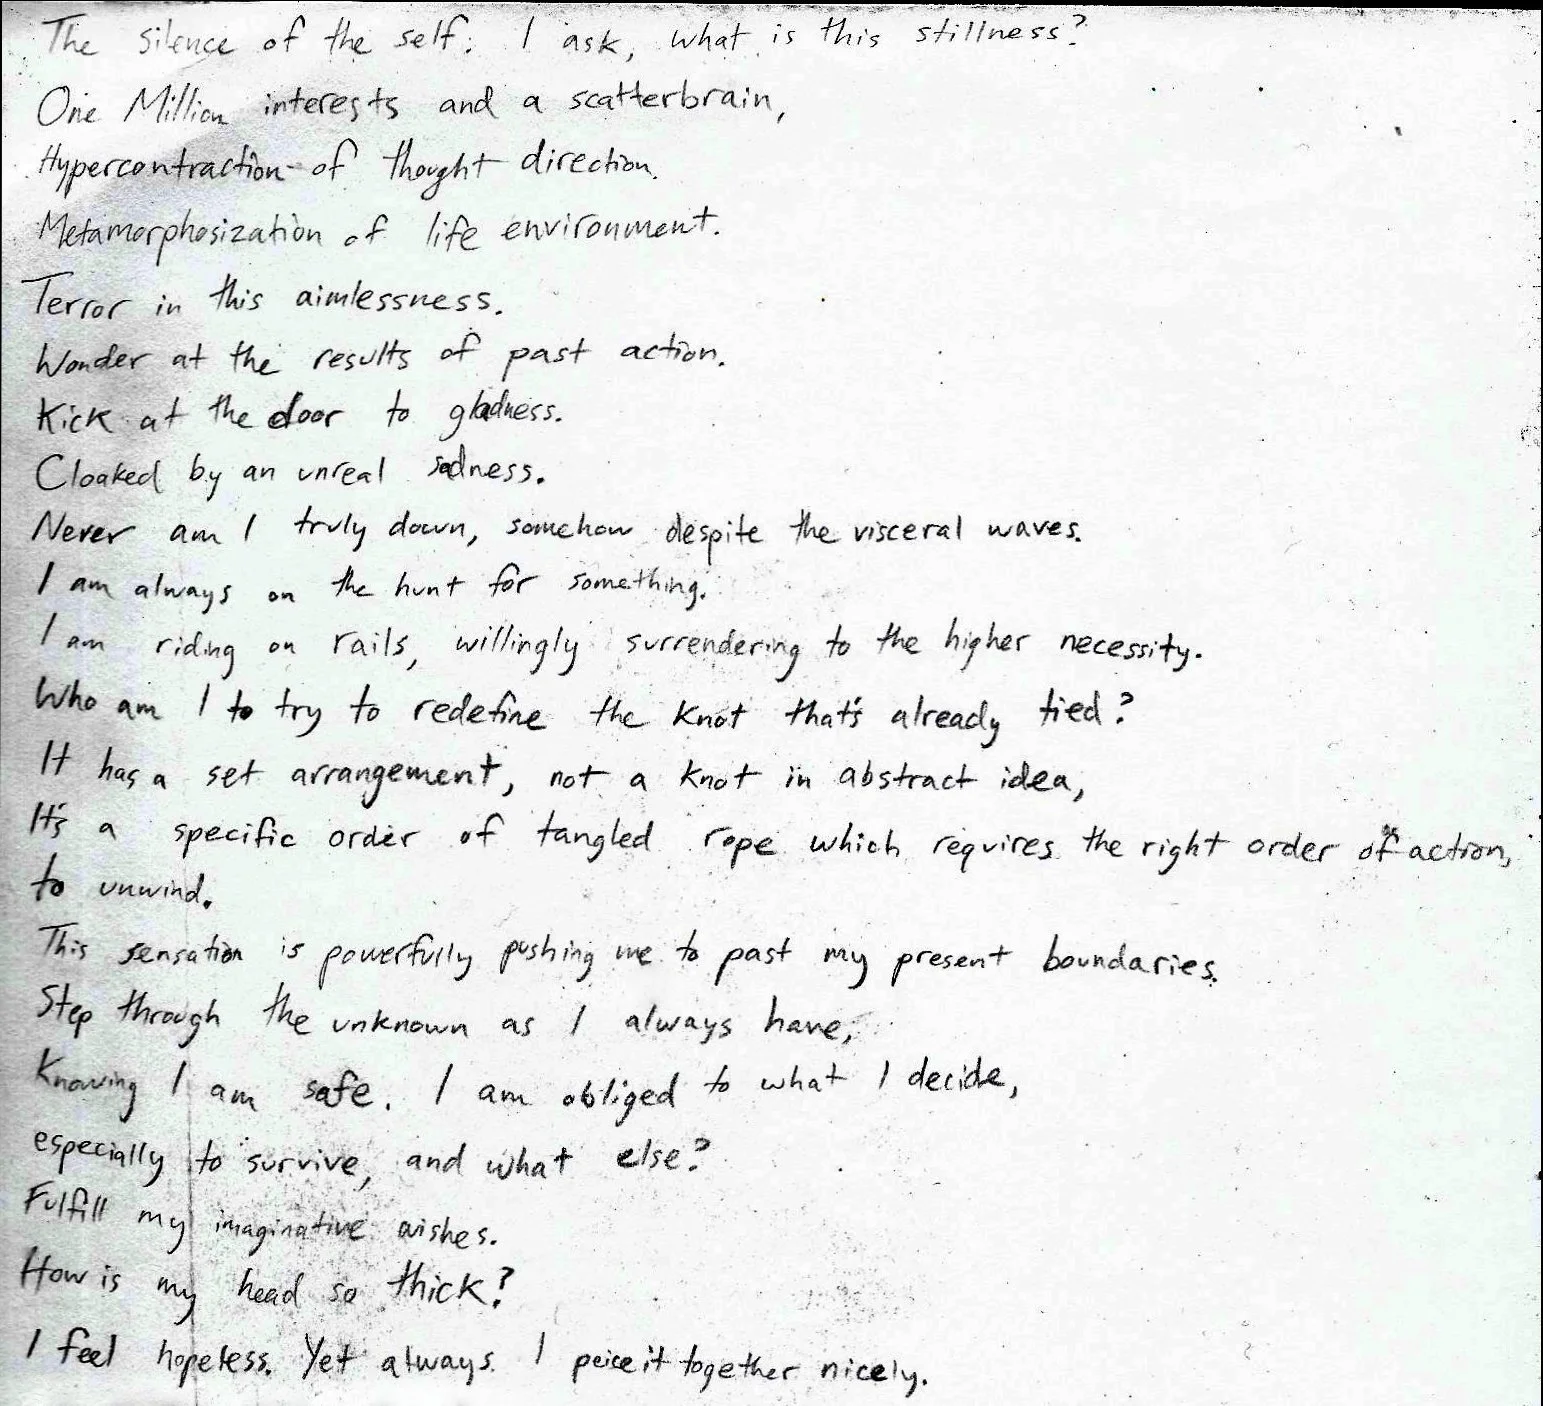 The silence of the self. I ask, what is this stillness?
One Million interests and a scatterbrain,
Hypercontraction of thought direction.
Metamorphosization of life environment.
Terror in this aimlessness.
Wonder at the results of past action.
Kick at the door to gladness.
Cloaked by an unreal sadness.
Never am I truly down, somehow despite the visceral waves.
I am always on the hunt for something.
I am riding on rails, willingly surrendering to the higher necessity.
Who am I to try to redefine the knot that's already tied?
It has a set arrangement, not a knot in abstract idea,
It's a specific order of tangled rope which requires the right order of action,
to unwind.
This sensation is powerfully pushing me to past my present boundaries.
Step through the unknown as I always have,
Knowing I am safe. I am obliged to what I decide,
especially to survive, and what else?
Fulfill my imaginative wishes.
How is my head so thick?
I feel hopeless. Yet always I peice it together nicely.